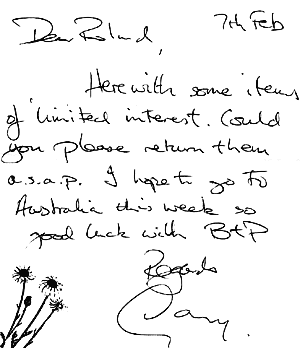 7th Feb
Dear Roland,
Herewith some items
of limited interest. Could
you please return them
a.s.a.p. I hope to go to
Australia this week so
good luck with B+P
Regards
Gary.